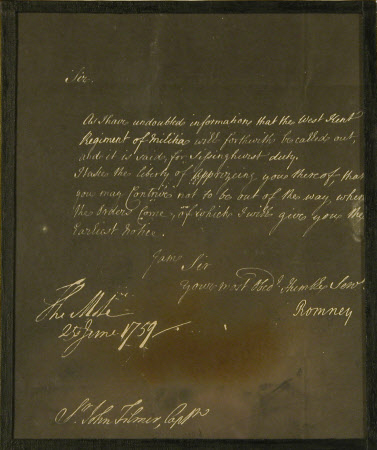 Sir.
As I have undoubted information, that the West Kent
Regiment of Militia will forthwith be called out,
and it is said, for Sissinghurst duty.
I take the liberty of apprizing you thereof, that
you may contrive not to be out of the way, when
the Orders Come, of which I will give you the
Earliest notice.
I am Sir
Your most Obed.t Humble Serv.
Romney
The Mote
25 June 1759
Sr. John Filmer, Captn